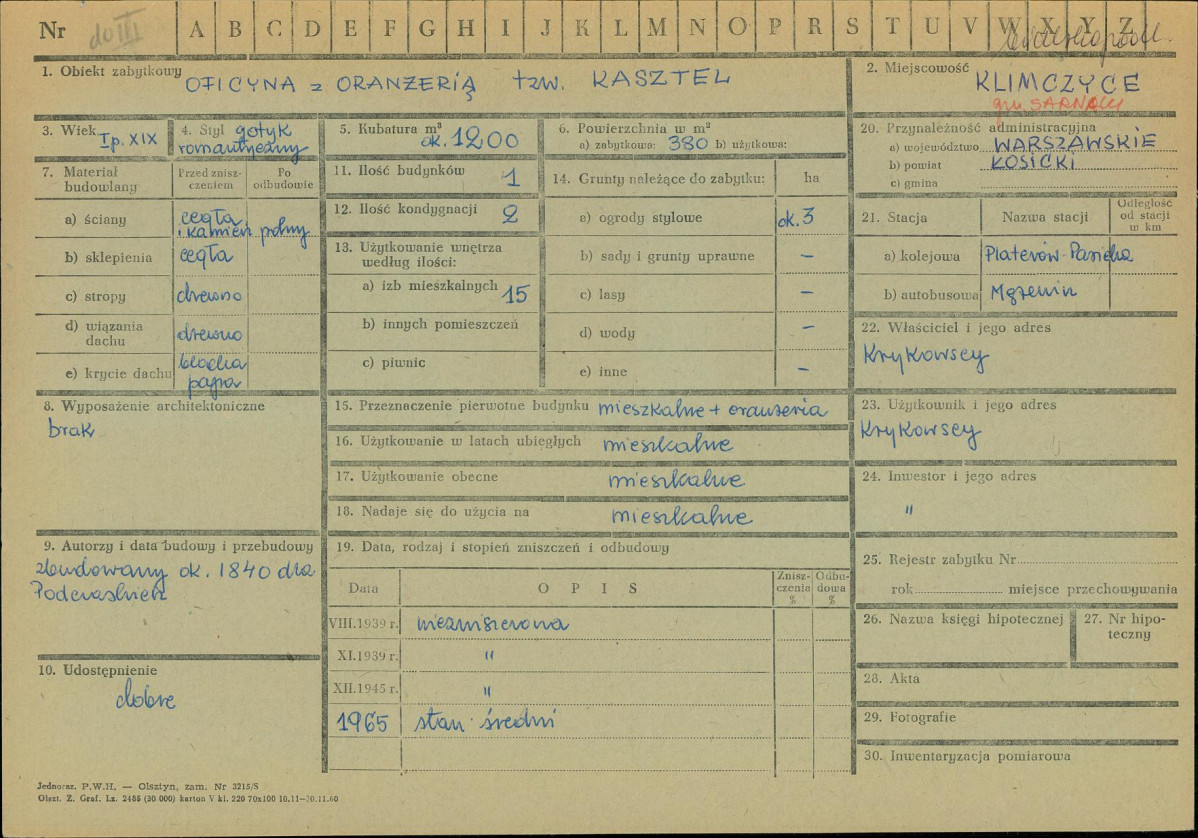 Nr do III A B C D E F G H I J K L M N O P R S T U V W X Y Z
1. Obiekt zabytkowy OFICYNA z ORANŻERIĄ tzw. KASZTEL
2. Miejscowość KLIMCZYCE
gm. SARNAKI
3. Wiek I p. XIX
4. Styl gotyk
romantyczny
5. Kubatura m³ ok. 1200
6. Powierzchnia w m²
a) zabytkowa: 380 b) użytkowa:
7. Materiał
budowlany
Przed znisz-
czeniem
Po
odbudowie
a) ściany cegła
i kamień polny
b) sklepienia cegła
c) stropy drewno
d) wiązania
dachu drewno
e) krycie dachu blacha
papa
8. Wyposażenie architektoniczne
brak
9. Autorzy i data budowy i przebudowy
zbudowany ok. 1840 dla
10. Udostępnienie
dobre
11. Ilość budynków 1
12. Ilość kondygnacji 2
13. Użytkowanie wnętrza
według ilości:
a) izb mieszkalnych 15
b) innych pomieszczeń
c) piwnic
14. Grunty należące do zabytku: ha
a) ogrody stylowe ok. 3
b) sady i grunty uprawne –
c) lasy –
d) wody –
e) inne –
15. Przeznaczenie pierwotne budynku mieszkalne + oranżeria
16. Użytkowanie w latach ubiegłych mieszkalne
17. Użytkowanie obecne mieszkalne
18. Nadaje się do użycia na mieszkalne
19. Data, rodzaj i stopień zniszczeń i odbudowy
Data O P I S Znisz-
czenia
% Odbu-
dowa
%
VIII.1939 r. niezniszczona
XI.1939 r. "
XII.1945 r. "
1965 stan średni
20. Przynależność administracyjna
a) województwo WARSZAWSKIE
b) powiat ŁOSICKI
c) gmina
21. Stacja Nazwa stacji Odległość
od stacji
w km
a) kolejowa Platerów
b) autobusowa Mężenin
22. Właściciel i jego adres
Krykowscy
23. Użytkownik i jego adres
Krykowscy
24. Inwestor i jego adres
"
25. Rejestr zabytku Nr
rok miejsce przechowywania
26. Nazwa księgi hipotecznej
27. Nr hipo-
teczny
28. Akta
29. Fotografie
30. Inwentaryzacja pomiarowa
Jednoraz. P.W.H. — Olsztyn, zam. Nr 3215/S
Olszt. Z. Graf. Lz. 2485 (30 000) karton V kl. 220 70x100 10.11—30.11.60